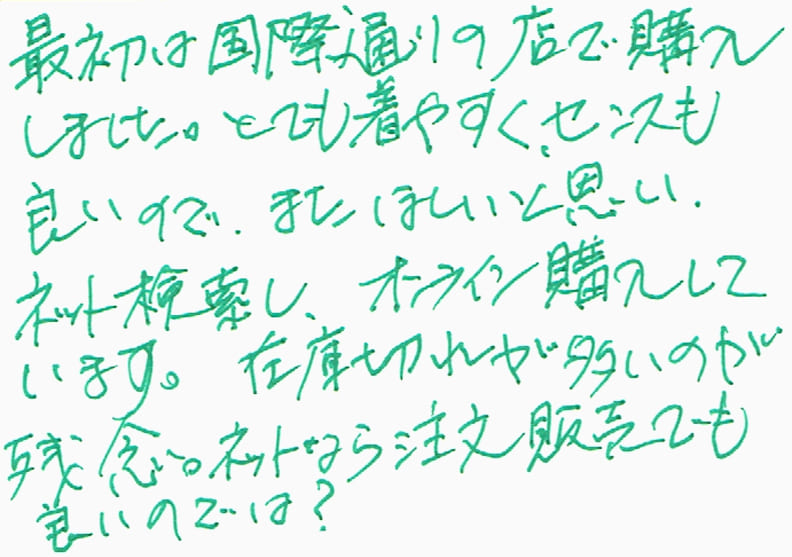 最初は国際通りの店で購入
しました。とても着やすく、センスも
良いので、またほしいと思い、
ネット検索し、オンライン購入して
います。在庫切れが多いのが
残念。ネットなら注文販売でも
良いのでは？